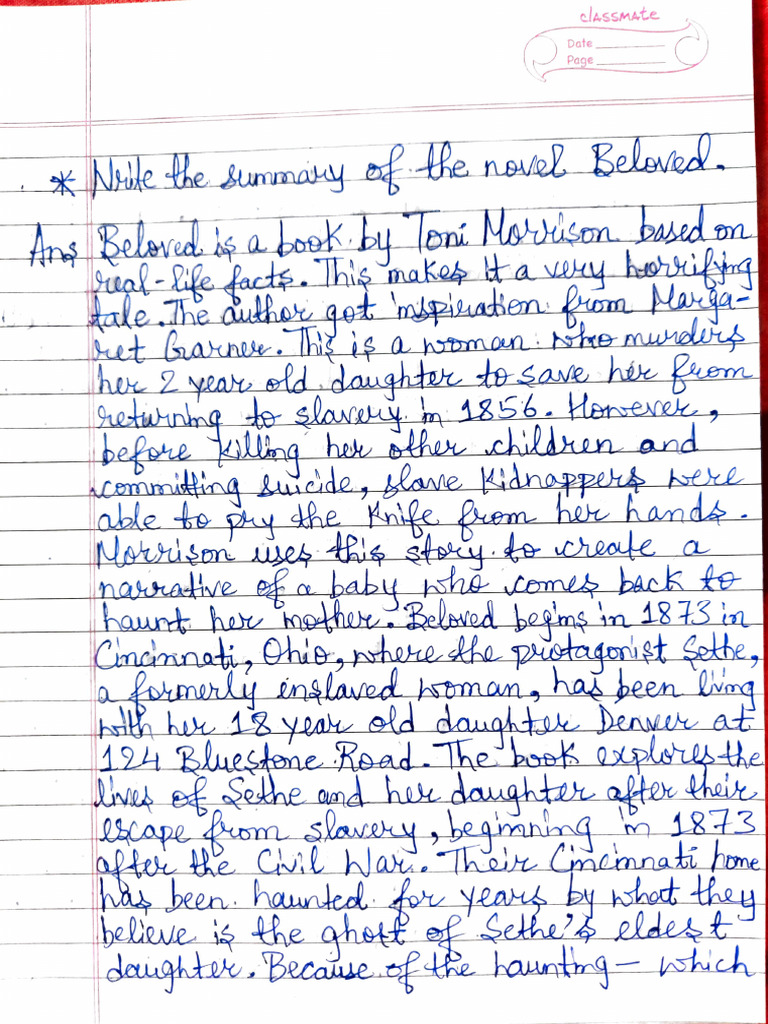 classmate
Date
Page
* Write the summary of the novel Beloved.
Ans Beloved is a book by Toni Morrison based on
real-life facts. This makes it a very horrifying
tale. The author got inspiration from Marga-
ret Garner. This is a woman who murders
her 2 year old daughter to save her from
returning to slavery in 1856. However,
before killing her other children and
committing suicide, slave kidnappers were
able to pry the knife from her hands.
Morrison uses this story to create a
narrative of a baby who comes back to
haunt her mother. Beloved begins in 1873 in
Cincinnati, Ohio, where the protagonist Sethe,
a formerly enslaved woman, has been living
with her 18 year old daughter Denver at
124 Bluestone Road. The book explores the
lives of Sethe and her daughter after their
escape from slavery, beginning in 1873
after the Civil War. Their Cincinnati home
has been haunted for years by what they
believe is the ghost of Sethe's eldest
daughter. Because of the haunting – which